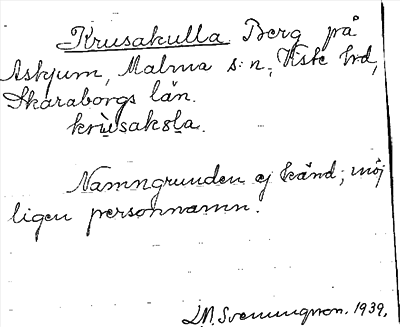 Krusakulla Berg på
Askjum, Malma s:n, Viste hd,
Skaraborgs län.
krùsakɷla.
Namngrunden ej känd; möj
ligen personnamn.
Svenungsson. 1939.